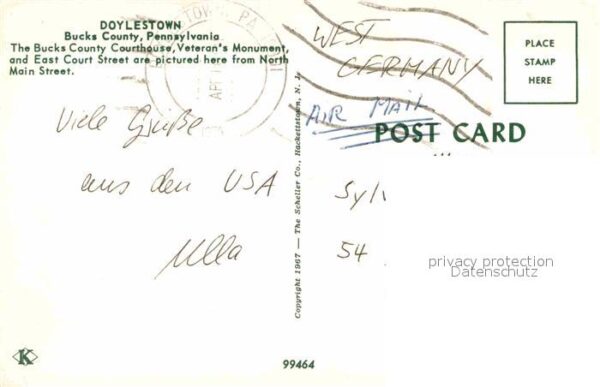 DOYLESTOWN
Bucks County, Pennsylvania
The Bucks County Courthouse, Veteran's Monument,
and East Court Street are pictured here from North
Main Street.
APR
PLACE
STAMP
HERE
WEST
GERMANY
AIR MAIL
POST CARD
Viele Grüße
aus den USA
Ulla
Copyright 1967 — The Scheller Co., Hackettstown, N. J.
Syl
54
privacy protection
Datenschutz
K
99464